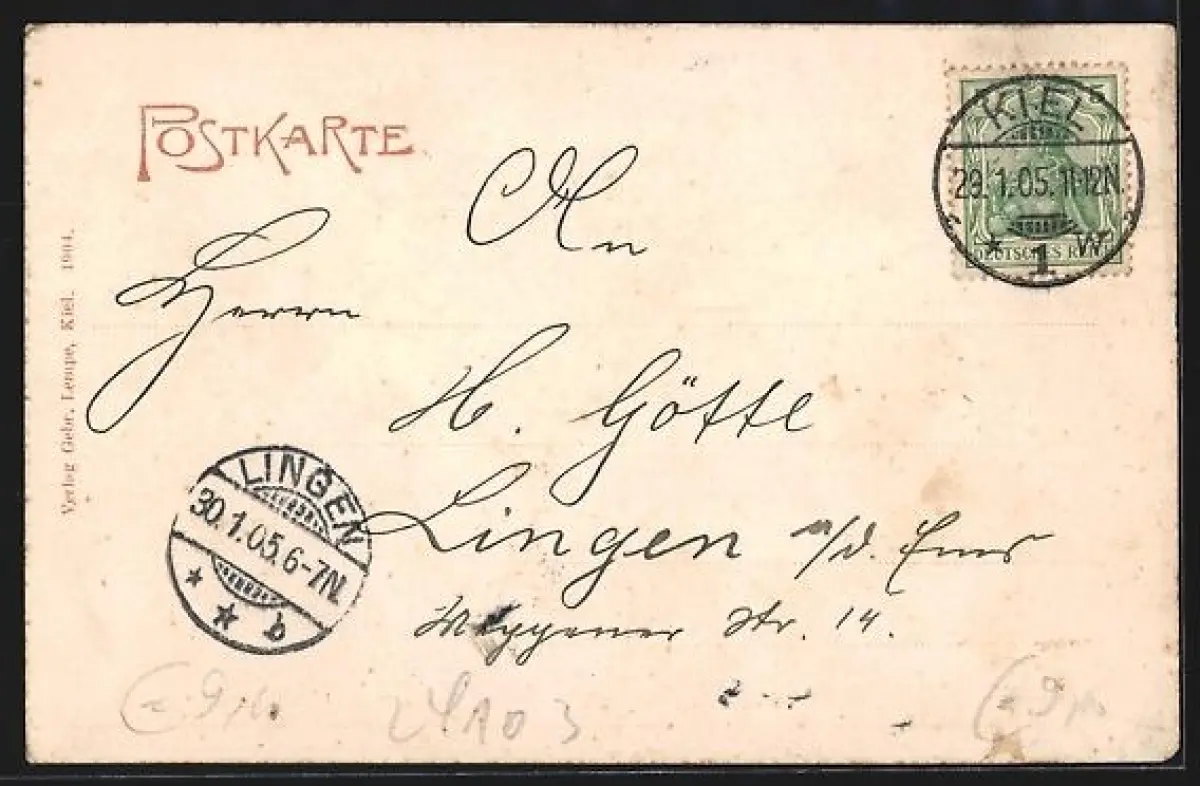 POSTKARTE
KIEL
29.1.05.11-12N.
* 1 W
DEUTSCHES REICH
An
Herrn
H. Götte
Lingen a/d. Ems
Str. 14.
LINGEN
30.1.05.6-7N.
* * b
Verlag Gebr. Lempe, Kiel. 1904.
24103